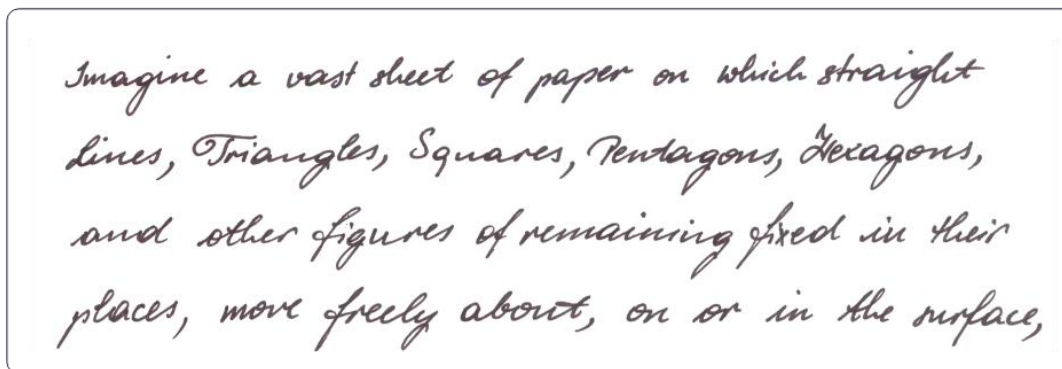 Imagine a vast sheet of paper on which straight
Lines, Triangles, Squares, Pentagons, Hexagons,
and other figures of remaining fixed in their
places, move freely about, on or in the surface,